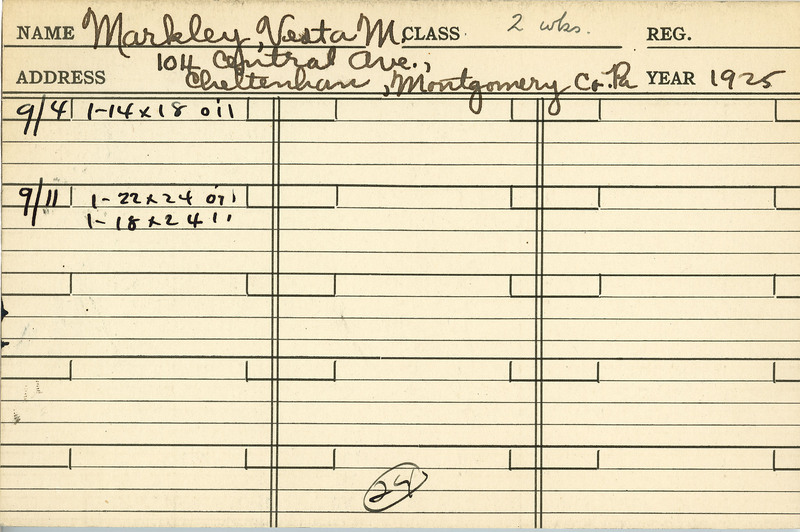 NAME Markley, Vesta M. CLASS 2 wks. REG.
104 Central Ave.,
ADDRESS Cheltenham, Montgomery Co. Pa YEAR 1925
9/4 1-14x18 oil
9/11 1-22x24 oil
1-18x24 "
24